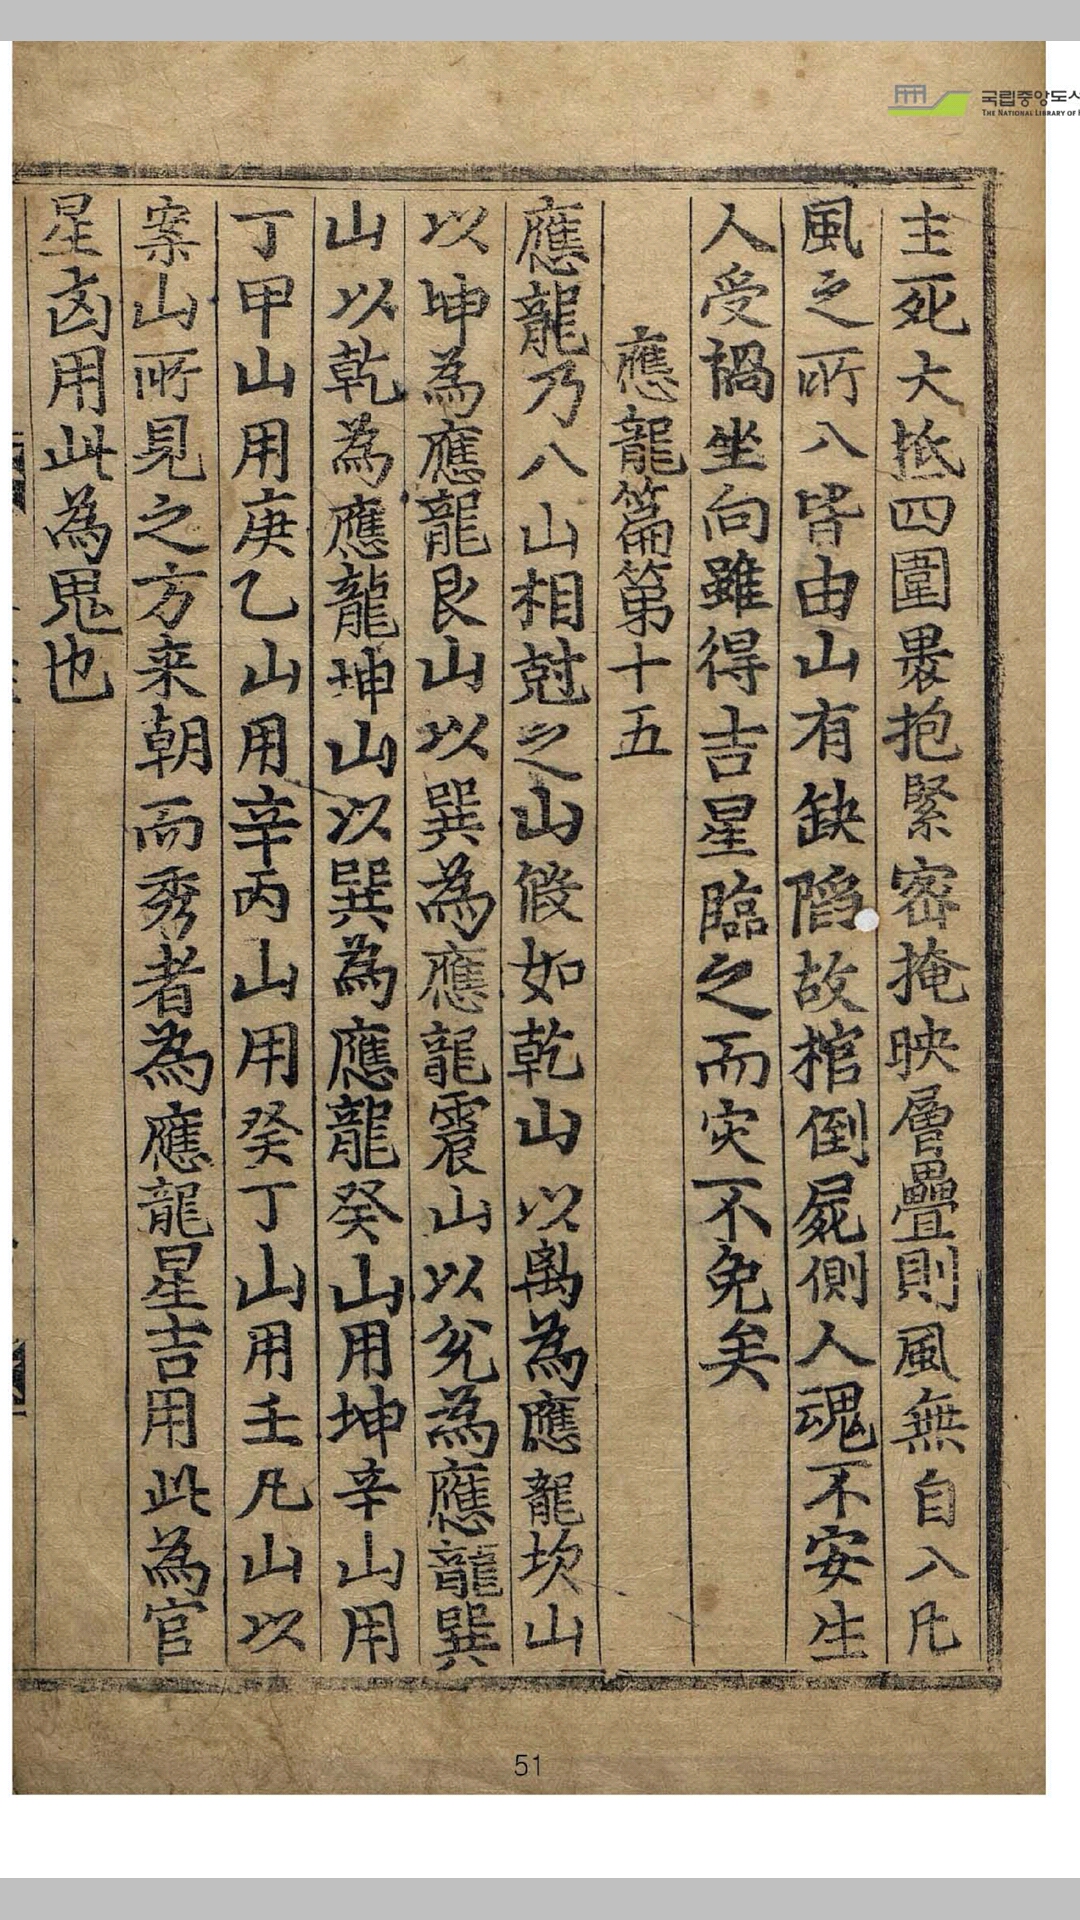 主死大抵四圍褁抱緊密掩映層疊則風無自入凡
風之所入皆由山有缺陷故棺倒屍側人魂不安生
人受禍坐向雖得吉星臨之而灾不免矣
應龍篇第十五
應龍乃八山相尅之山假如乾山以离為應龍坎山
以坤為應龍艮山以巽為應龍震山以兊為應龍巽
山以乾為應龍坤山以巽為應龍癸山用坤辛山用
丁甲山用庚乙山用辛丙山用癸丁山用壬凡山以
案山所見之方来朝而秀者為應龍星吉用此為官
星凶用此為鬼也
국립중앙도서
THE NATIONAL LIBRARY OF
51